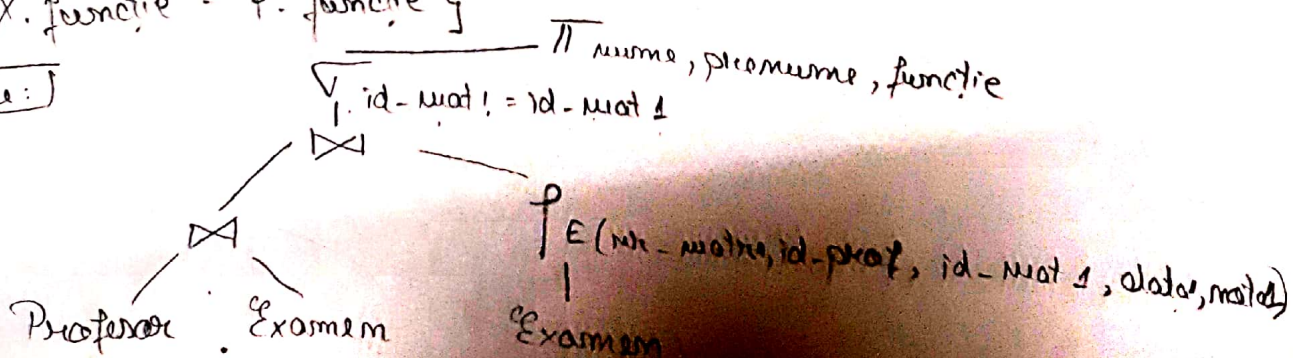 X. funcție = Y. funcție }
e:
π nume, prenume, funcție
σ id-mat ! = id-mat 1
⋈
⋈
ρ E (nr-matric, id-prof, id-mat 1, data1, nota1)
Profesor Examen Examen